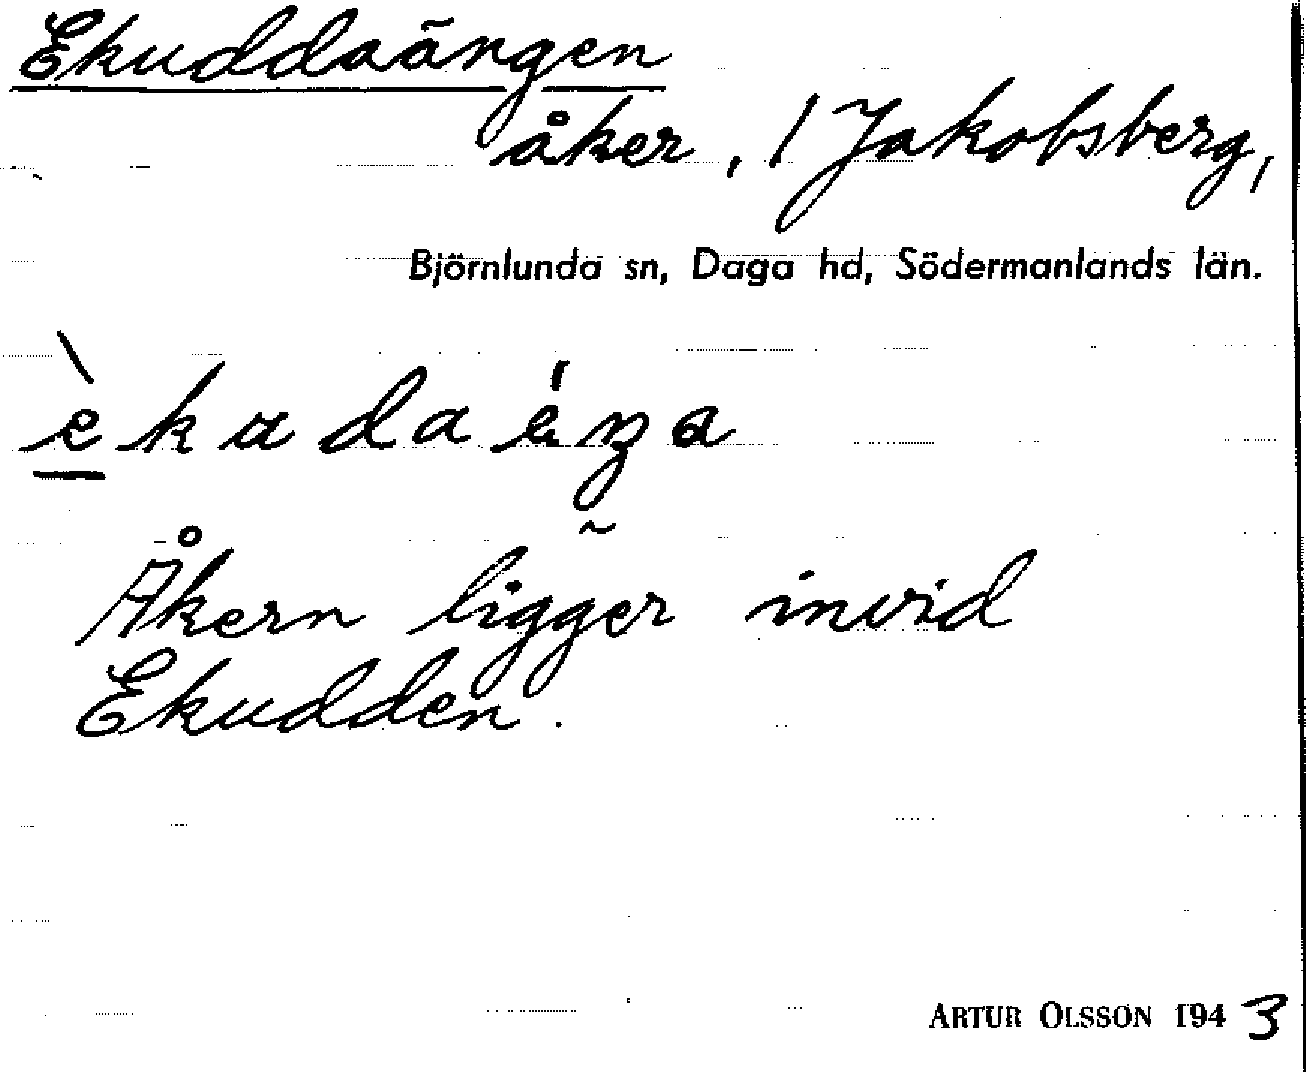 Ekuddaängen
åker, / Jakobsberg,
Björnlunda sn, Daga hd, Södermanlands län.
Åkern ligger invid
Ekudden.
ARTUR OLSSON 1943